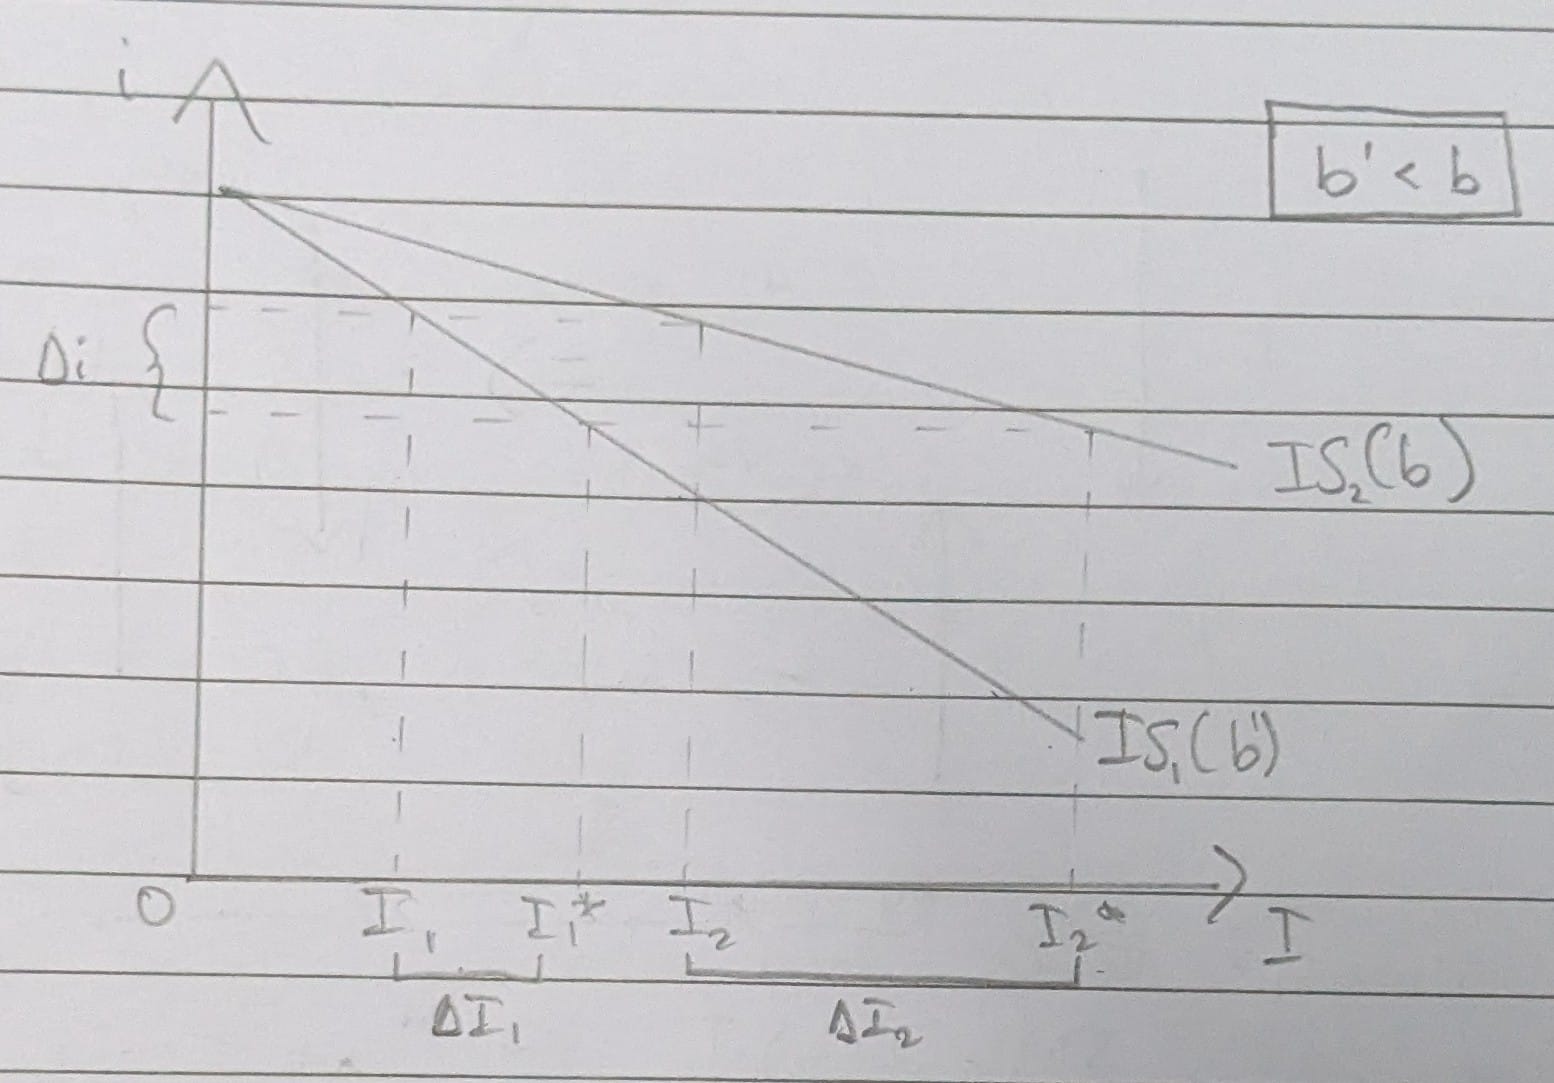 i
b' < b
Δi
IS₂(b)
IS₁(b')
O I₁ I₁* I₂ I₂* I
ΔI₁ ΔI₂